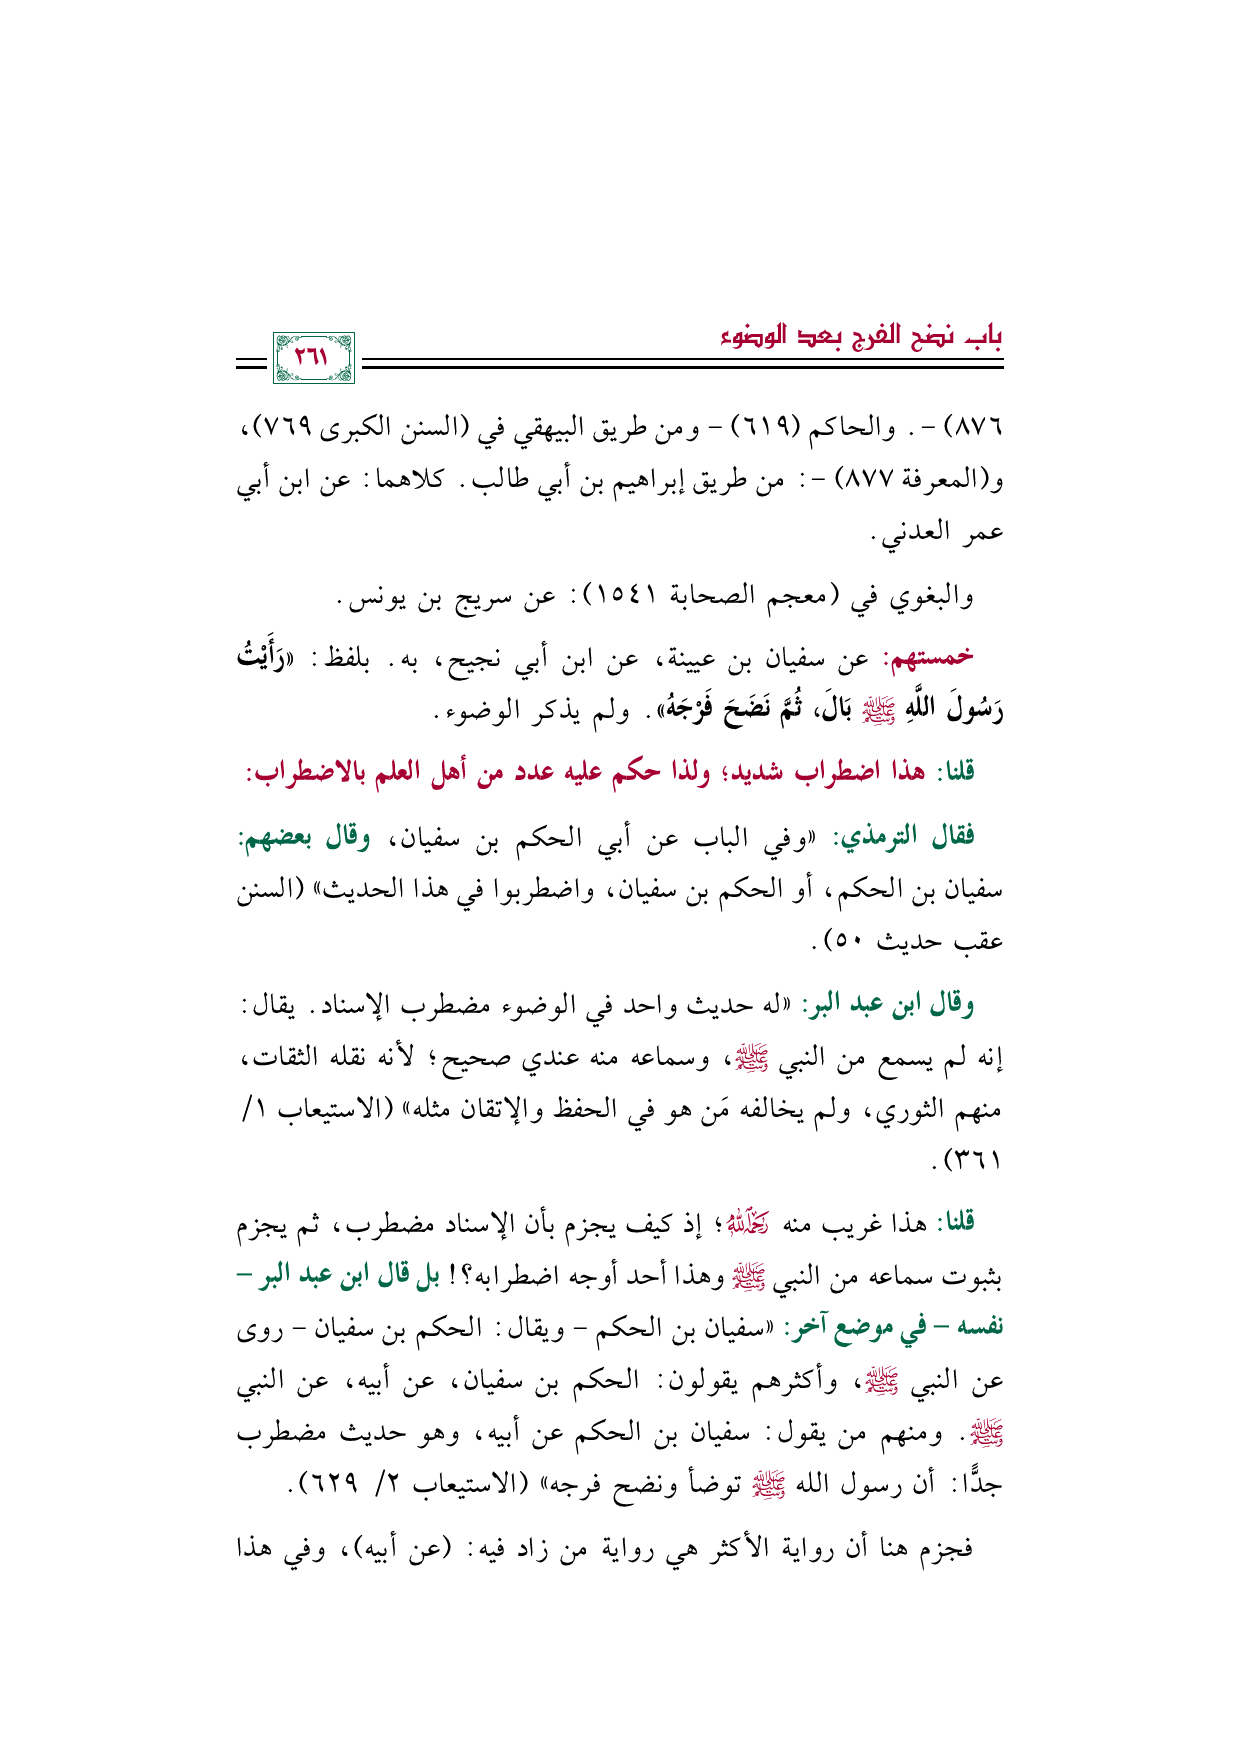 باب نضح الفرج بعد الوضوء
٢٦١
٨٧٦) -. والحاكم (٦١٩) - ومن طريق البيهقي في (السنن الكبرى ٧٦٩)،
و(المعرفة ٨٧٧) -: من طريق إبراهيم بن أبي طالب. كلاهما: عن ابن أبي
عمر العدني.
والبغوي في (معجم الصحابة ١٥٤١): عن سريج بن يونس.
خمستهم: عن سفيان بن عيينة، عن ابن أبي نجيح، به. بلفظ: «رَأَيْتُ
رَسُولَ اللَّهِ ﷺ بَالَ، ثُمَّ نَضَحَ فَرْجَهُ». ولم يذكر الوضوء.
قلنا: هذا اضطراب شديد؛ ولذا حكم عليه عدد من أهل العلم بالاضطراب:
فقال الترمذي: «وفي الباب عن أبي الحكم بن سفيان، وقال بعضهم:
سفيان بن الحكم، أو الحكم بن سفيان، واضطربوا في هذا الحديث» (السنن
عقب حديث ٥٠).
وقال ابن عبد البر: «له حديث واحد في الوضوء مضطرب الإسناد. يقال:
إنه لم يسمع من النبي ﷺ، وسماعه منه عندي صحيح؛ لأنه نقله الثقات،
منهم الثوري، ولم يخالفه مَن هو في الحفظ والإتقان مثله» (الاستيعاب ١/
٣٦١).
قلنا: هذا غريب منه رحمه الله؛ إذ كيف يجزم بأن الإسناد مضطرب، ثم يجزم
بثبوت سماعه من النبي ﷺ وهذا أحد أوجه اضطرابه؟! بل قال ابن عبد البر -
نفسه - في موضع آخر: «سفيان بن الحكم - ويقال: الحكم بن سفيان - روى
عن النبي ﷺ، وأكثرهم يقولون: الحكم بن سفيان، عن أبيه، عن النبي
ﷺ. ومنهم من يقول: سفيان بن الحكم عن أبيه، وهو حديث مضطرب
جدًّا: أن رسول الله ﷺ توضأ ونضح فرجه» (الاستيعاب ٢/ ٦٢٩).
فجزم هنا أن رواية الأكثر هي رواية من زاد فيه: (عن أبيه)، وفي هذا